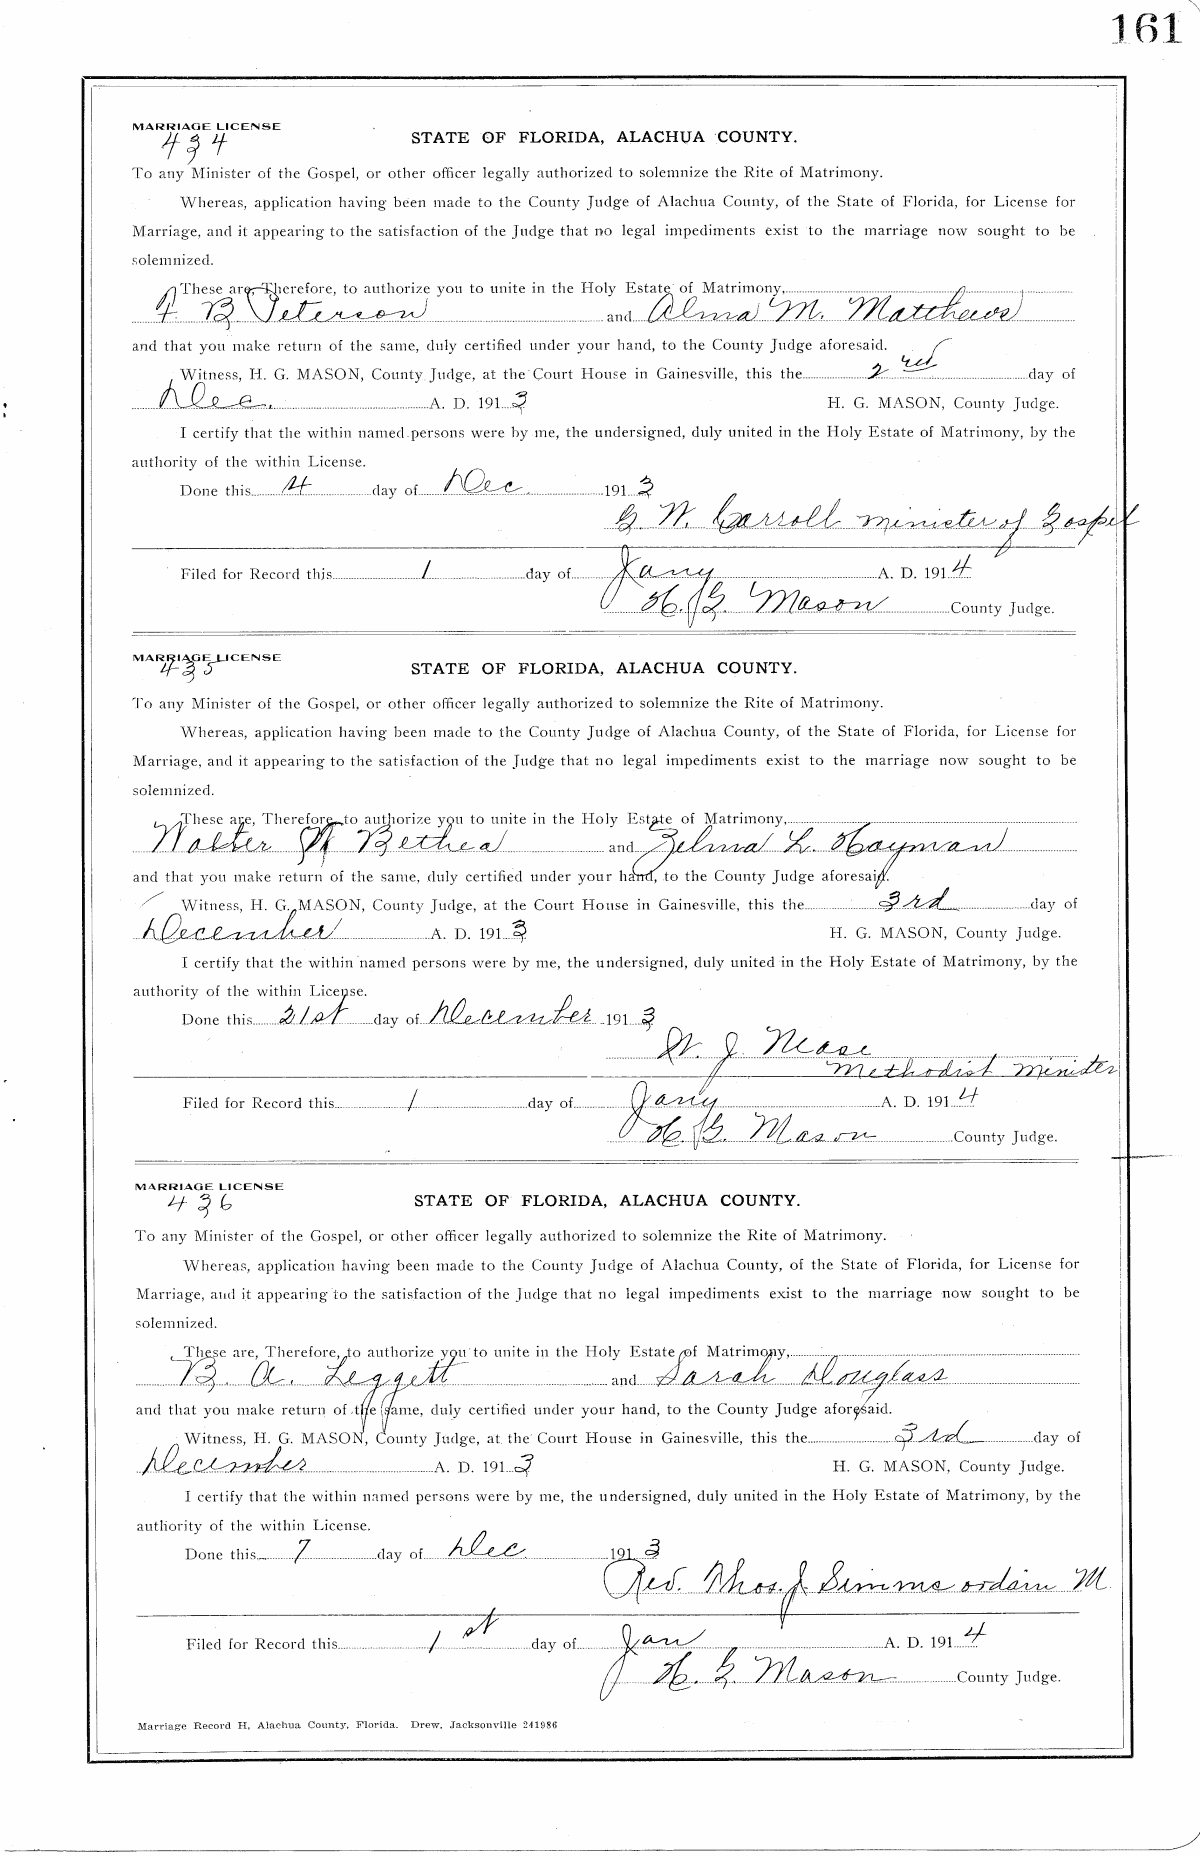 161
MARRIAGE LICENSE
434
STATE OF FLORIDA, ALACHUA COUNTY.
To any Minister of the Gospel, or other officer legally authorized to solemnize the Rite of Matrimony.
Whereas, application having been made to the County Judge of Alachua County, of the State of Florida, for License for
Marriage, and it appearing to the satisfaction of the Judge that no legal impediments exist to the marriage now sought to be
solemnized.
These are, Therefore, to authorize you to unite in the Holy Estate of Matrimony,
B Peterson and Alma M. Matthews
and that you make return of the same, duly certified under your hand, to the County Judge aforesaid.
Witness, H. G. MASON, County Judge, at the Court House in Gainesville, this the 2nd day of
Dec. A. D. 1913 H. G. MASON, County Judge.
I certify that the within named persons were by me, the undersigned, duly united in the Holy Estate of Matrimony, by the
authority of the within License.
Done this 4 day of Dec 1913
G. W. Carroll minister of Gospel
Filed for Record this 1 day of Jany A. D. 1914
H. G. Mason County Judge.
MARRIAGE LICENSE
435
STATE OF FLORIDA, ALACHUA COUNTY.
To any Minister of the Gospel, or other officer legally authorized to solemnize the Rite of Matrimony.
Whereas, application having been made to the County Judge of Alachua County, of the State of Florida, for License for
Marriage, and it appearing to the satisfaction of the Judge that no legal impediments exist to the marriage now sought to be
solemnized.
These are, Therefore, to authorize you to unite in the Holy Estate of Matrimony,
Walter Bethea and Zelma L. Hayman
and that you make return of the same, duly certified under your hand, to the County Judge aforesaid.
Witness, H. G. MASON, County Judge, at the Court House in Gainesville, this the 3rd day of
December A. D. 1913 H. G. MASON, County Judge.
I certify that the within named persons were by me, the undersigned, duly united in the Holy Estate of Matrimony, by the
authority of the within License.
Done this 21st day of December 1913
W. J. Nease
Methodist Minister
Filed for Record this 1 day of Jany A. D. 1914
H. G. Mason County Judge.
MARRIAGE LICENSE
436
STATE OF FLORIDA, ALACHUA COUNTY.
To any Minister of the Gospel, or other officer legally authorized to solemnize the Rite of Matrimony.
Whereas, application having been made to the County Judge of Alachua County, of the State of Florida, for License for
Marriage, and it appearing to the satisfaction of the Judge that no legal impediments exist to the marriage now sought to be
solemnized.
These are, Therefore, to authorize you to unite in the Holy Estate of Matrimony,
B. A. Leggett and Sarah Douglass
and that you make return of the same, duly certified under your hand, to the County Judge aforesaid.
Witness, H. G. MASON, County Judge, at the Court House in Gainesville, this the 3rd day of
December A. D. 1913 H. G. MASON, County Judge.
I certify that the within named persons were by me, the undersigned, duly united in the Holy Estate of Matrimony, by the
authority of the within License.
Done this 7 day of Dec 1913
Rev. Thos. J Simms ordain M
Filed for Record this 1st day of Jan A. D. 1914
H. G. Mason County Judge.
Marriage Record H, Alachua County, Florida. Drew, Jacksonville 241986